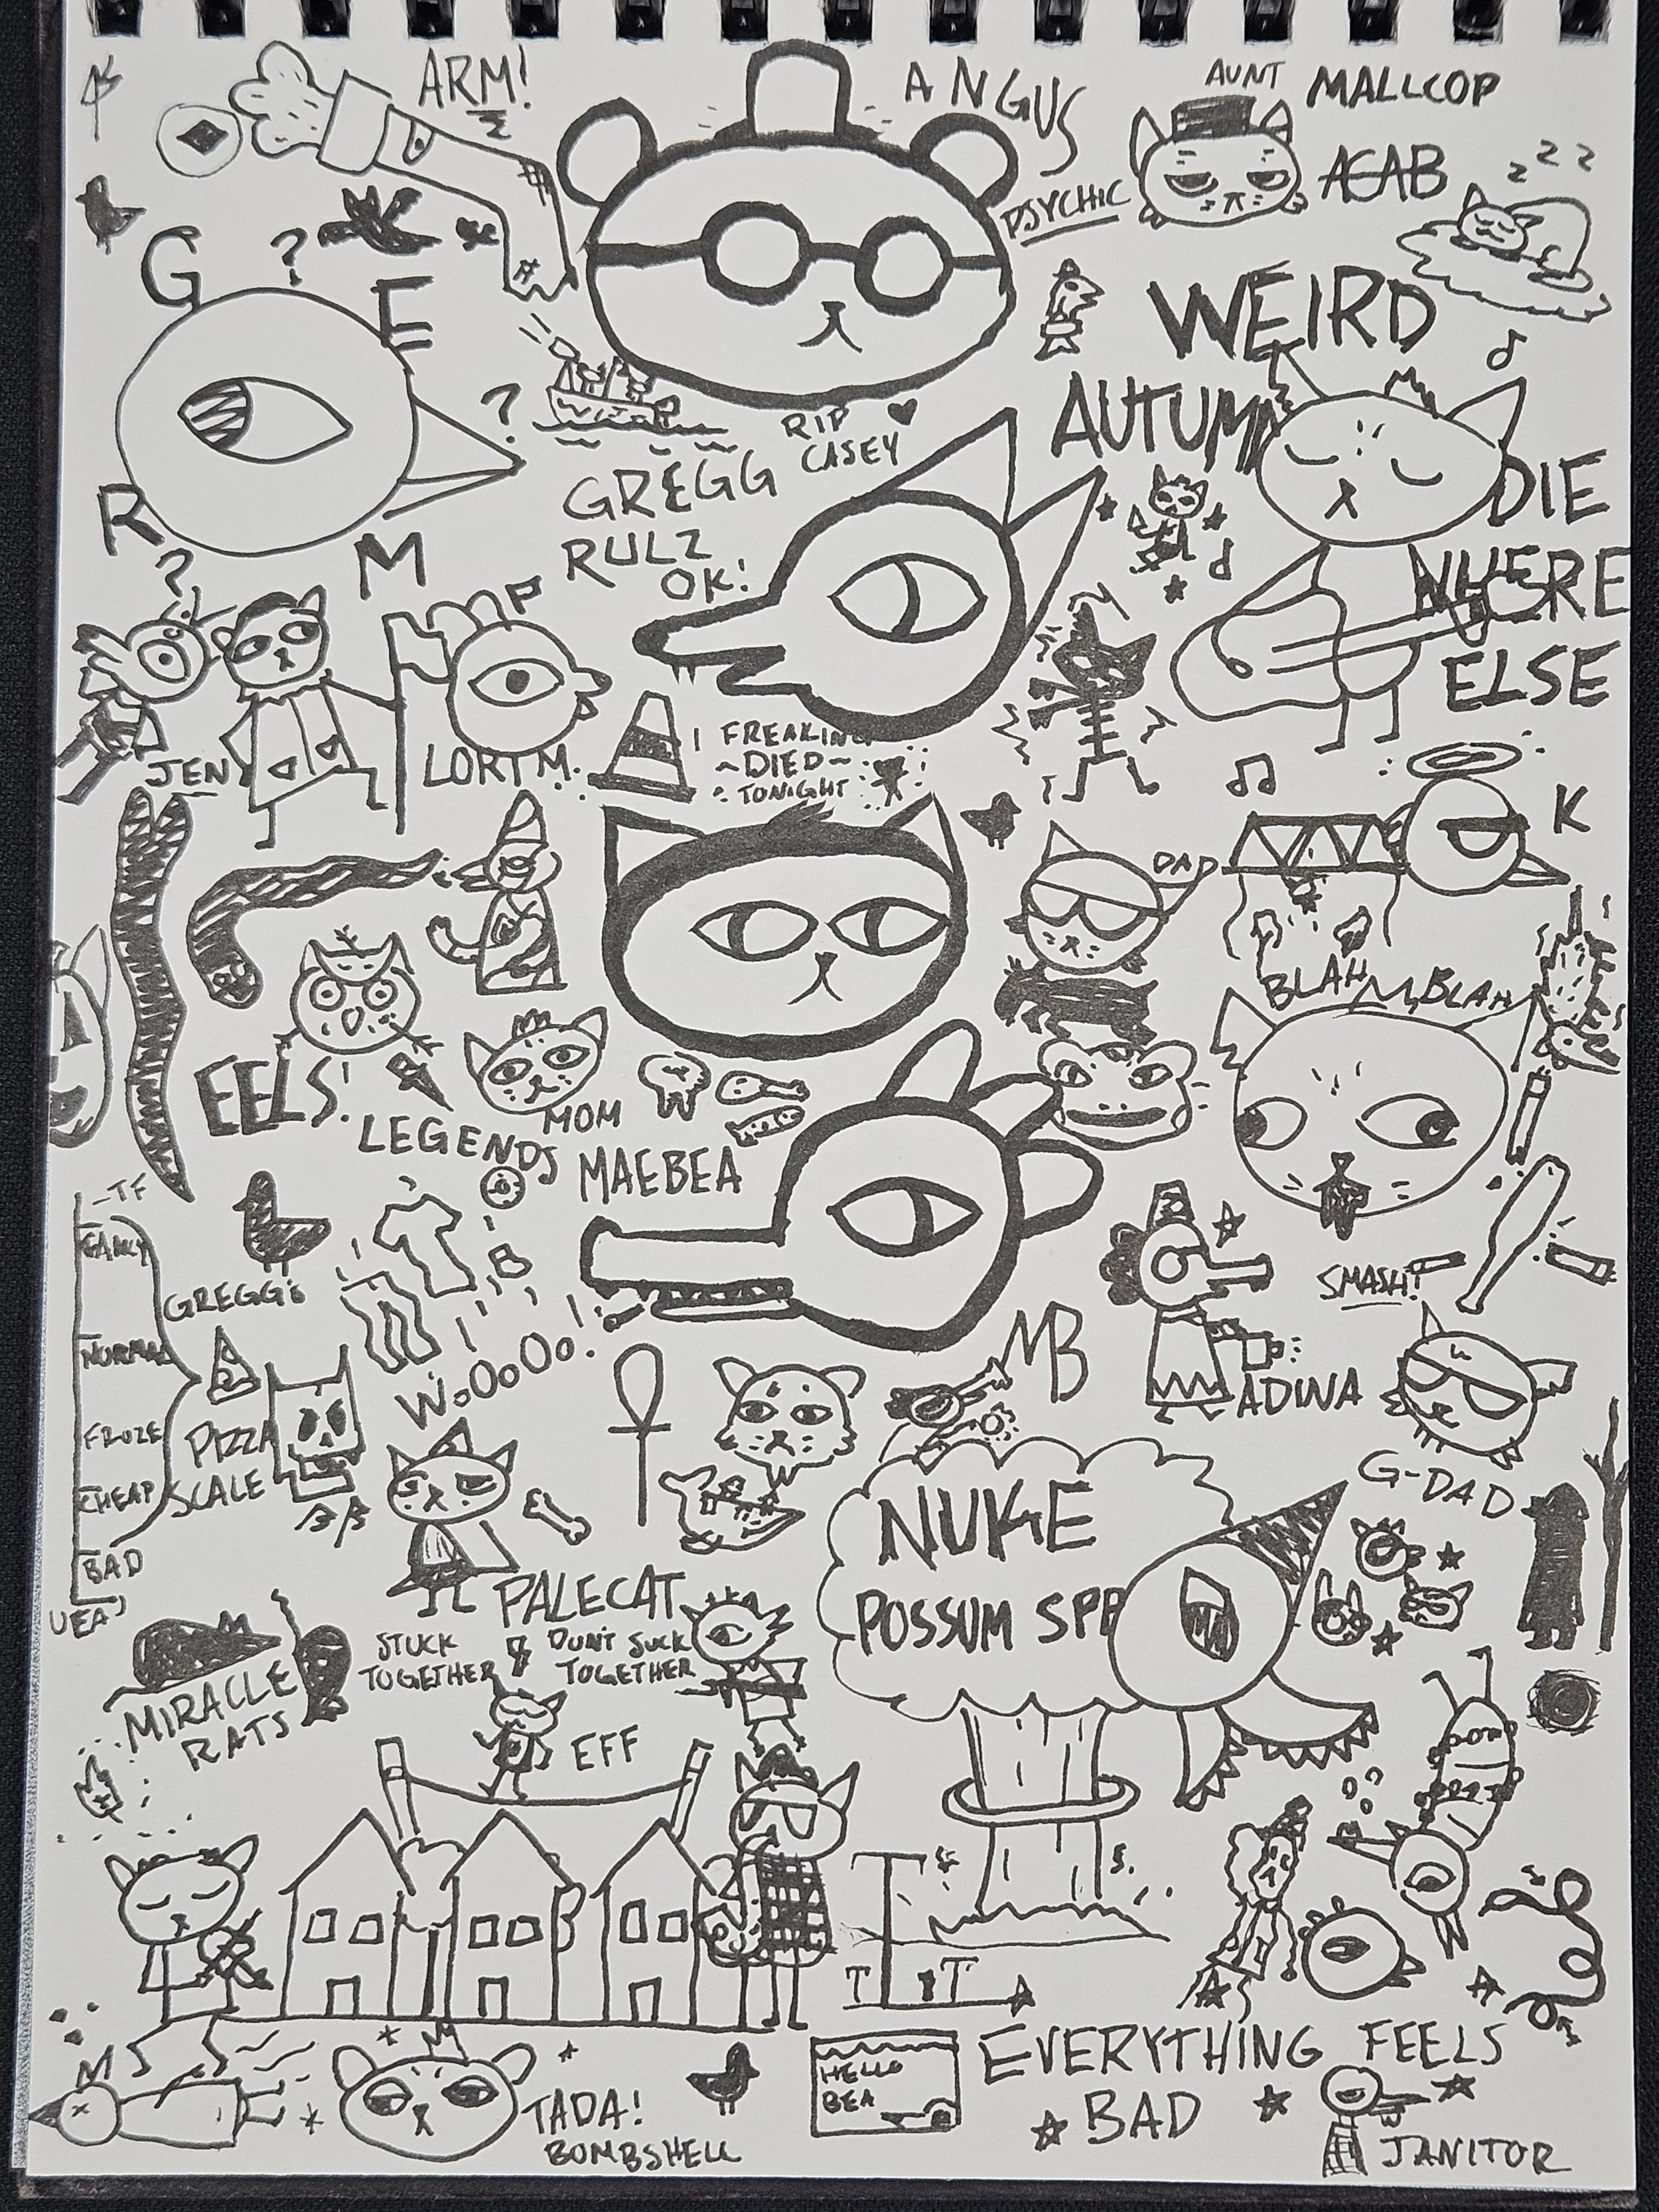 ARM!
ANGUS
AUNT MALLCOP
ACAB
PSYCHIC
z z z
G ?
E
R
M
?
?
WEIRD
AUTUMN
DIE
WHERE
ELSE
RIP
CASEY
GREGG
RULZ
OK!
JEN
LORI M.
I FREAKIN
~DIED~
TONIGHT
DAD
K
BLAH BLAH
EELS!
LEGENDS
MOM
MAEBEA
FANCY
NORMAL
FROZE
CHEAP
BAD
UEA
GREGG:
PIZZA
SCALE
B
WoOoOo!
MB
ADINA
SMASH!
G-DAD
NUKE
POSSUM SPR
PALECAT
STUCK
TOGETHER
DON'T SUCK
TOGETHER
MIRACLE
RATS
EFF
TADA!
BOMBSHELL
HELLO
BEA
EVERYTHING FEELS
BAD
JANITOR